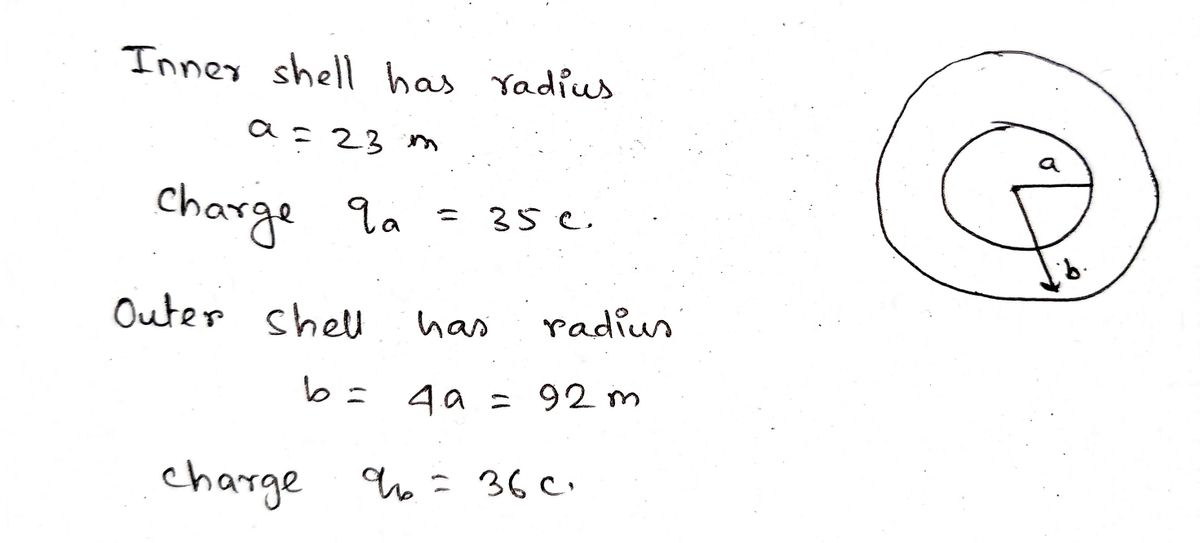 Inner shell has radius
a = 23 m
Charge qa = 35 c.
Outer shell has radius
b = 4a = 92 m
charge qb = 36 c.
a
b.